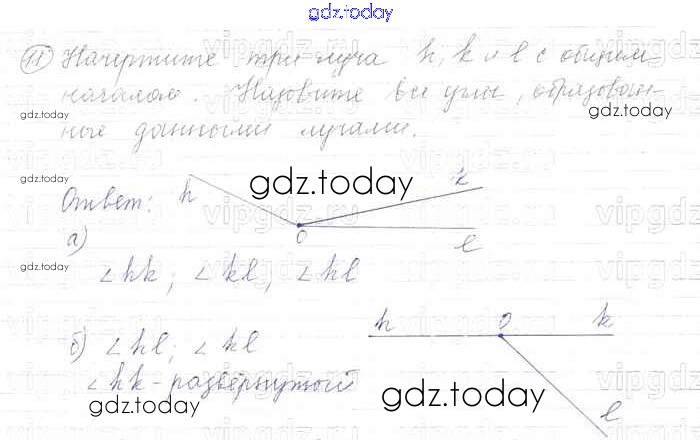 gdz.today
11 Начертите три луча h, k и l с общим
началом. Назовите все углы, образован-
ные данными лучами.
Ответ:
а)
h
k
O
l
∠hk; ∠kl, ∠hl
б) ∠hl; ∠kl
∠hk - развёрнутый
h
O
k
l
gdz.today
gdz.today
gdz.today
gdz.today
gdz.today
gdz.today
gdz.today
gdz.today